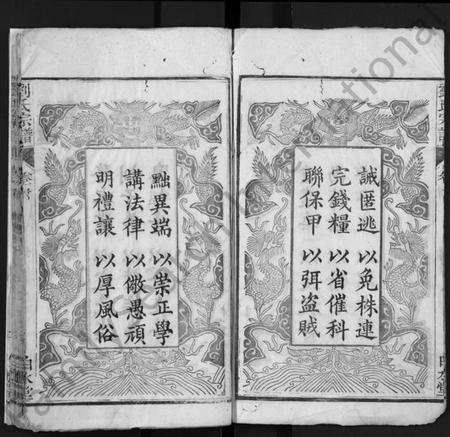 誡匿逃 以免株連
完錢糧 以省催科
聯保甲 以弭盗賊
黜異端 以崇正學
講法律 以儆愚頑
明禮讓 以厚風俗
劉氏宗譜